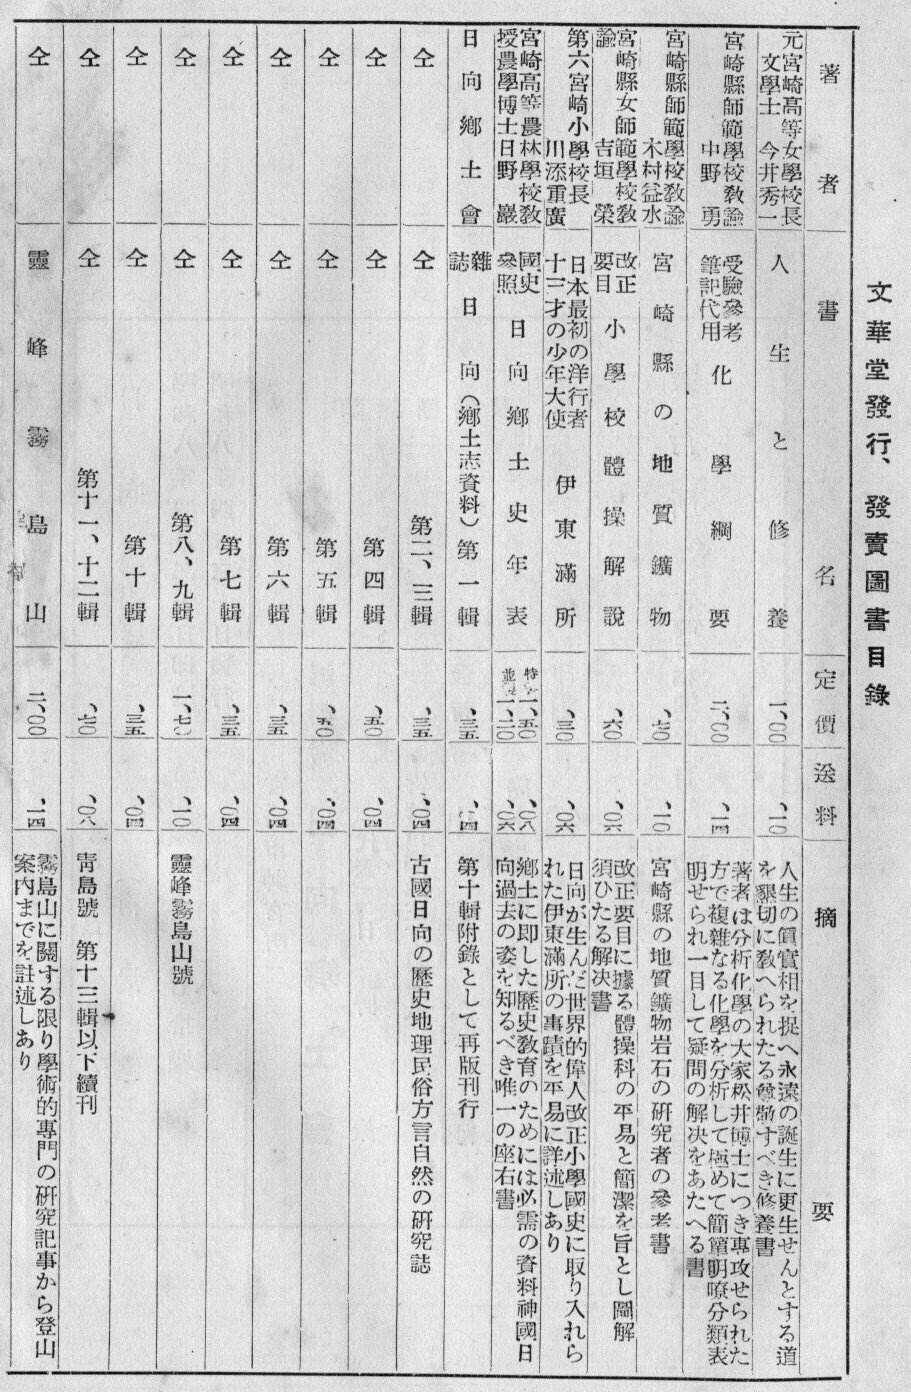 文華堂發行、發賣圖書目錄
著者
書名
定價
送料
摘要
元宮崎高等女學校長
文學士 今井秀一
人生と修養
一、〇〇
、一〇
人生の眞實相を捉へ永遠の誕生に更生せんとする道
を懇切に敎へられたる尊敬すべき修養書
宮崎縣師範學校敎諭
中野勇
受驗參考
筆記代用
化學綱要
二、〇〇
、一四
著者は分析化學の大家松井博士につき專攻せられた
方で複雜なる化學を分析して極めて簡簞明瞭分類表
明せられ一目して疑問の解决をあたへる書
宮崎縣師範學校敎諭
木村益水
宮崎縣の地質鑛物
、七〇
、一〇
宮崎縣の地質鑛物岩石の硏究者の參考書
宮崎縣女師範學校敎
諭
吉垣榮
改正
要目
小學校體操解說
、六〇
、〇六
改正要目に據る體操科の平易と簡潔を旨とし圖解
須ひたる解决書
第六宮崎小學校長
川添重廣
日本最初の洋行者
十三才の少年大使
伊東滿所
、三〇
、〇六
日向が生んだ世界的偉人改正小學國史に取り入れら
れた伊東滿所の事蹟を平易に詳述しあり
宮崎高等農林學校敎
授農學博士日野巖
國史
參照
日向鄕土史年表
特 一、五〇
並 一、二〇
、〇八
、〇六
鄕土に即した歷史敎育のためには必需の資料神國日
向過去の姿を知るべき唯一の座右書
日向鄕土會
雜
誌
日向(鄕土志資料)第一輯
、三五
、〇四
第十輯附錄として再版刊行
仝
仝 第二、三輯
、三五
、〇四
古國日向の歷史地理民俗方言自然の硏究誌
仝
仝 第四輯
、五〇
、〇四
仝
仝 第五輯
、五〇
、〇四
仝
仝 第六輯
、三五
、〇四
仝
仝 第七輯
、三五
、〇四
仝
仝 第八、九輯
一、七〇
、一〇
靈峰霧島山號
仝
仝 第十輯
、三五
、〇四
仝
仝 第十一、十二輯
、七〇
、〇八
靑島號 第十三輯以下續刊
仝
靈峰霧島山
二、〇〇
、一四
霧島山に關する限り學術的專門の硏究記事から登山
案内までを註述しあり